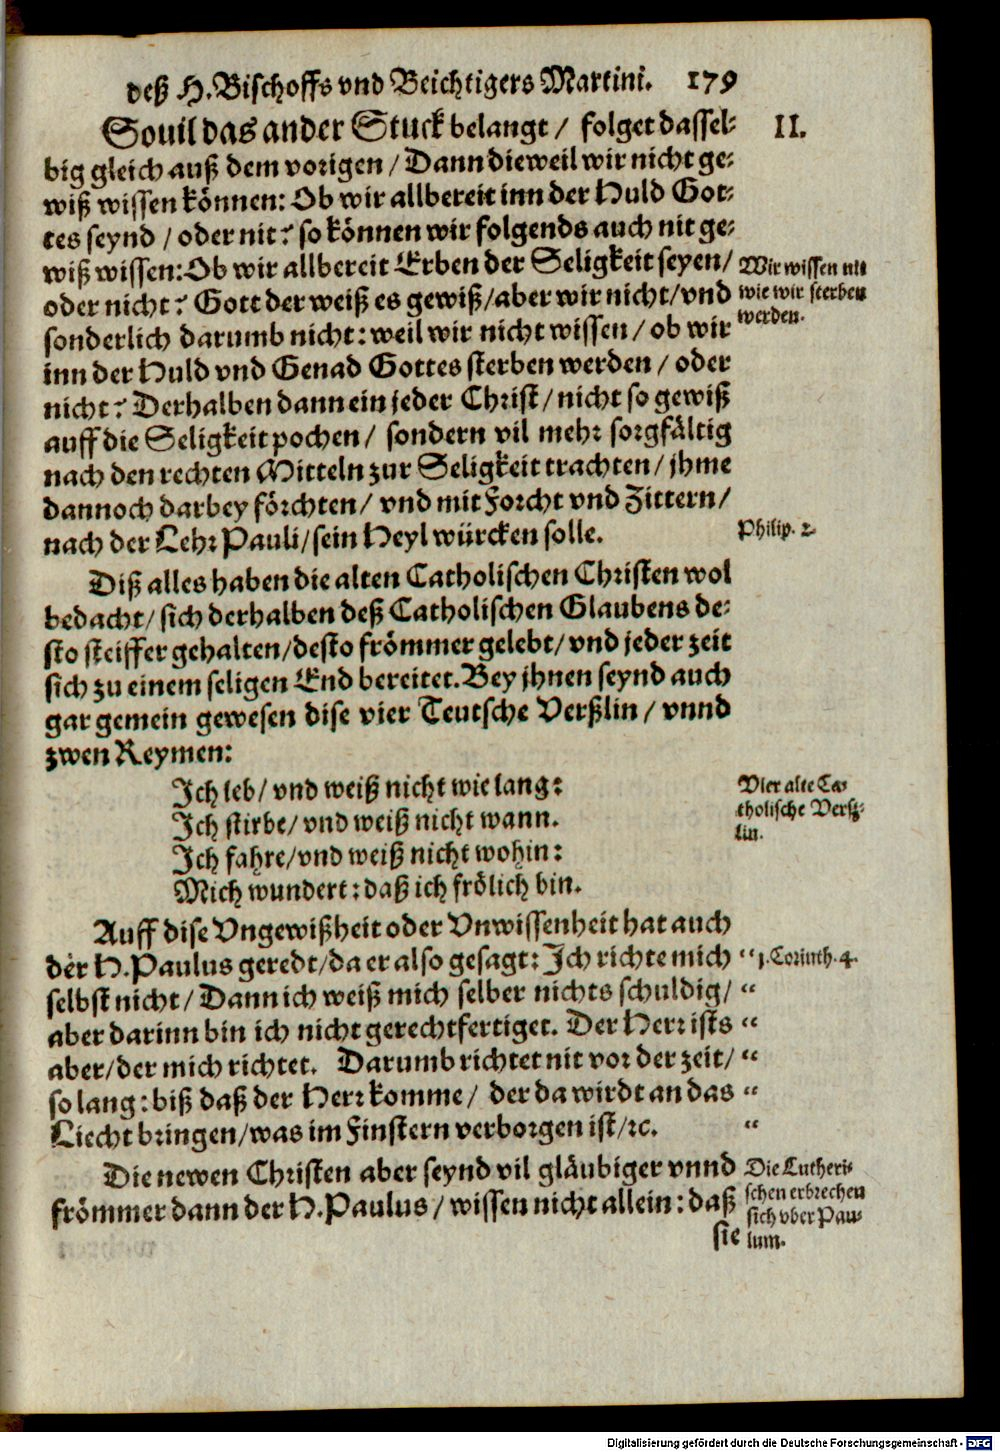 deß H. Bischoffs vnd Beichtigers Martini. 179
Souil das ander Stuck belangt / folget dassel- II.
big gleich auß dem vorigen / Dann dieweil wir nicht ge-
wiß wissen können: Ob wir allbereit inn der Huld Got-
tes seynd / oder nit? so können wir folgends auch nit ge-
wiß wissen: Ob wir allbereit Erben der Seligkeit seyen /
oder nicht? Gott der weiß es gewiß / aber wir nicht / vnd
sonderlich darumb nicht: weil wir nicht wissen / ob wir
inn der Huld vnd Genad Gottes sterben werden / oder
nicht? Derhalben dann ein jeder Christ / nicht so gewiß
auff die Seligkeit pochen / sondern vil mehr sorgfältig
nach den rechten Mitteln zur Seligkeit trachten / jhme
dannoch darbey förchten / vnd mit Forcht vnd Zittern /
nach der Lehr Pauli / sein Heyl würcken solle.
Wir wissen nit
wie wir sterben
werden.
Philip. 2.
Diß alles haben die alten Catholischen Christen wol
bedacht / sich derhalben deß Catholischen Glaubens de-
sto steiffer gehalten / desto frömmer gelebt / vnd jeder zeit
sich zu einem seligen End bereitet. Bey jhnen seynd auch
gar gemein gewesen dise vier Teutsche Verßlin / vnnd
zwen Reymen:
Ich leb / vnd weiß nicht wie lang:
Ich stirbe / vnd weiß nicht wann.
Ich fahre / vnd weiß nicht wohin:
Mich wundert: daß ich frölich bin.
Vier alte Ca-
tholische Verß-
lin.
Auff dise Vngewißheit oder Vnwissenheit hat auch
der H. Paulus geredt / da er also gesagt: Ich richte mich “ 1. Corinth. 4.
selbst nicht / Dann ich weiß mich selber nichts schuldig / “
aber darinn bin ich nicht gerechtfertiget. Der Herr ists “
aber / der mich richtet. Darumb richtet nit vor der zeit / “
so lang: biß daß der Herr komme / der da wirdt an das “
Liecht bringen / was im Finstern verborgen ist / ꝛc. “
Die newen Christen aber seynd vil gläubiger vnnd
frömmer dann der H. Paulus / wissen nicht allein: daß
sie
Die Lutheri-
schen erbrechen
sich vber Pau-
lum.
Digitalisierung gefördert durch die Deutsche Forschungsgemeinschaft - DFG